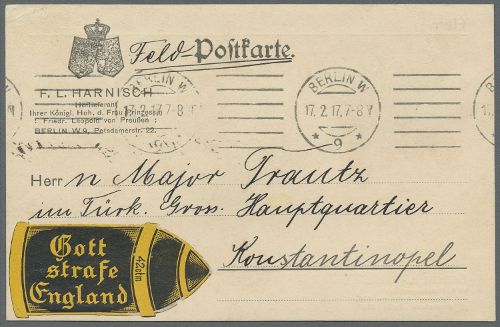 Feld-Postkarte.
F. L. HARNISCH
Hoflieferant
Ihrer Königl. Hoh. d. Frau Prinzessin
Friedr. Leopold von Preußen
BERLIN W 9, Potsdamerstr. 22.
BERLIN W
17.2.17.7-8V
9
BERLIN W
17.2.17.7-8V
* 9 *
Herrn Major Trautz
im Türk. Gross. Hauptquartier
Konstantinopel
Gott
strafe
England
42cm